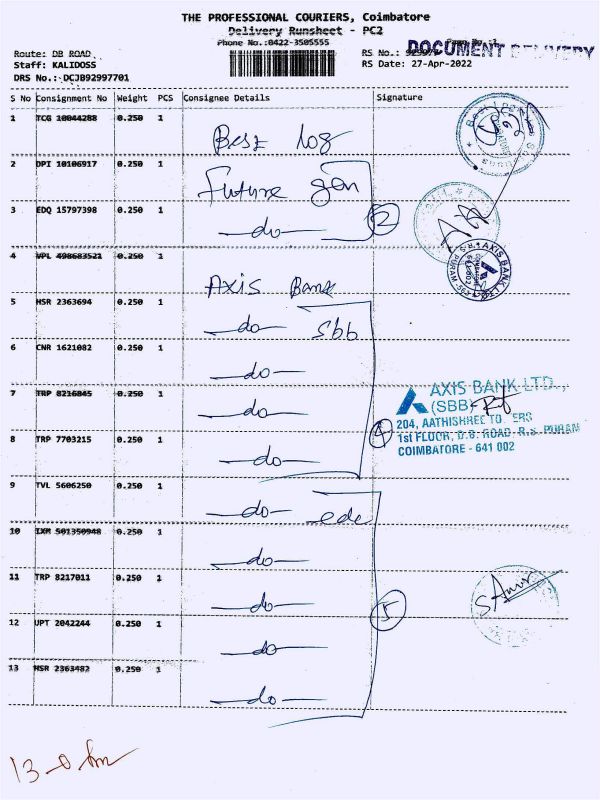 THE PROFESSIONAL COURIERS, Coimbatore
Delivery Runsheet - PC2
Phone No.:0422-3505555
DOCUMENT DELIVERY
Route: DB ROAD
Staff: KALIDOSS
DRS No.: DCJB92997701
RS No.:
RS Date: 27-Apr-2022
S No Consignment No Weight PCS Consignee Details Signature
1 TCG 10044288 0.250 1 Best log
2 DPI 10106917 0.250 1 Future gen
3 EDQ 15797398 0.250 1 -do- 2
4 VPL 498683521 0.250 1 Axis Bank
AXIS BANK LTD
5 HSR 2363694 0.250 1 -do- Sbb
6 CNR 1621082 0.250 1 -do-
7 TRP 8216845 0.250 1 -do-
8 TRP 7703215 0.250 1 -do- 4
AXIS BANK LTD.,
(SBB)
204, AATHISHREE TO ERS
1st FLOOR, D.B. ROAD, R.S. PURAM
COIMBATORE - 641 002
9 TVL 5606250 0.250 1 -do- edc
10 IXM 501350948 0.250 1 -do-
11 TRP 8217011 0.250 1 -do- 5
12 UPT 2042244 0.250 1 -do-
13 HSR 2363482 0.250 1 -do-
13-0